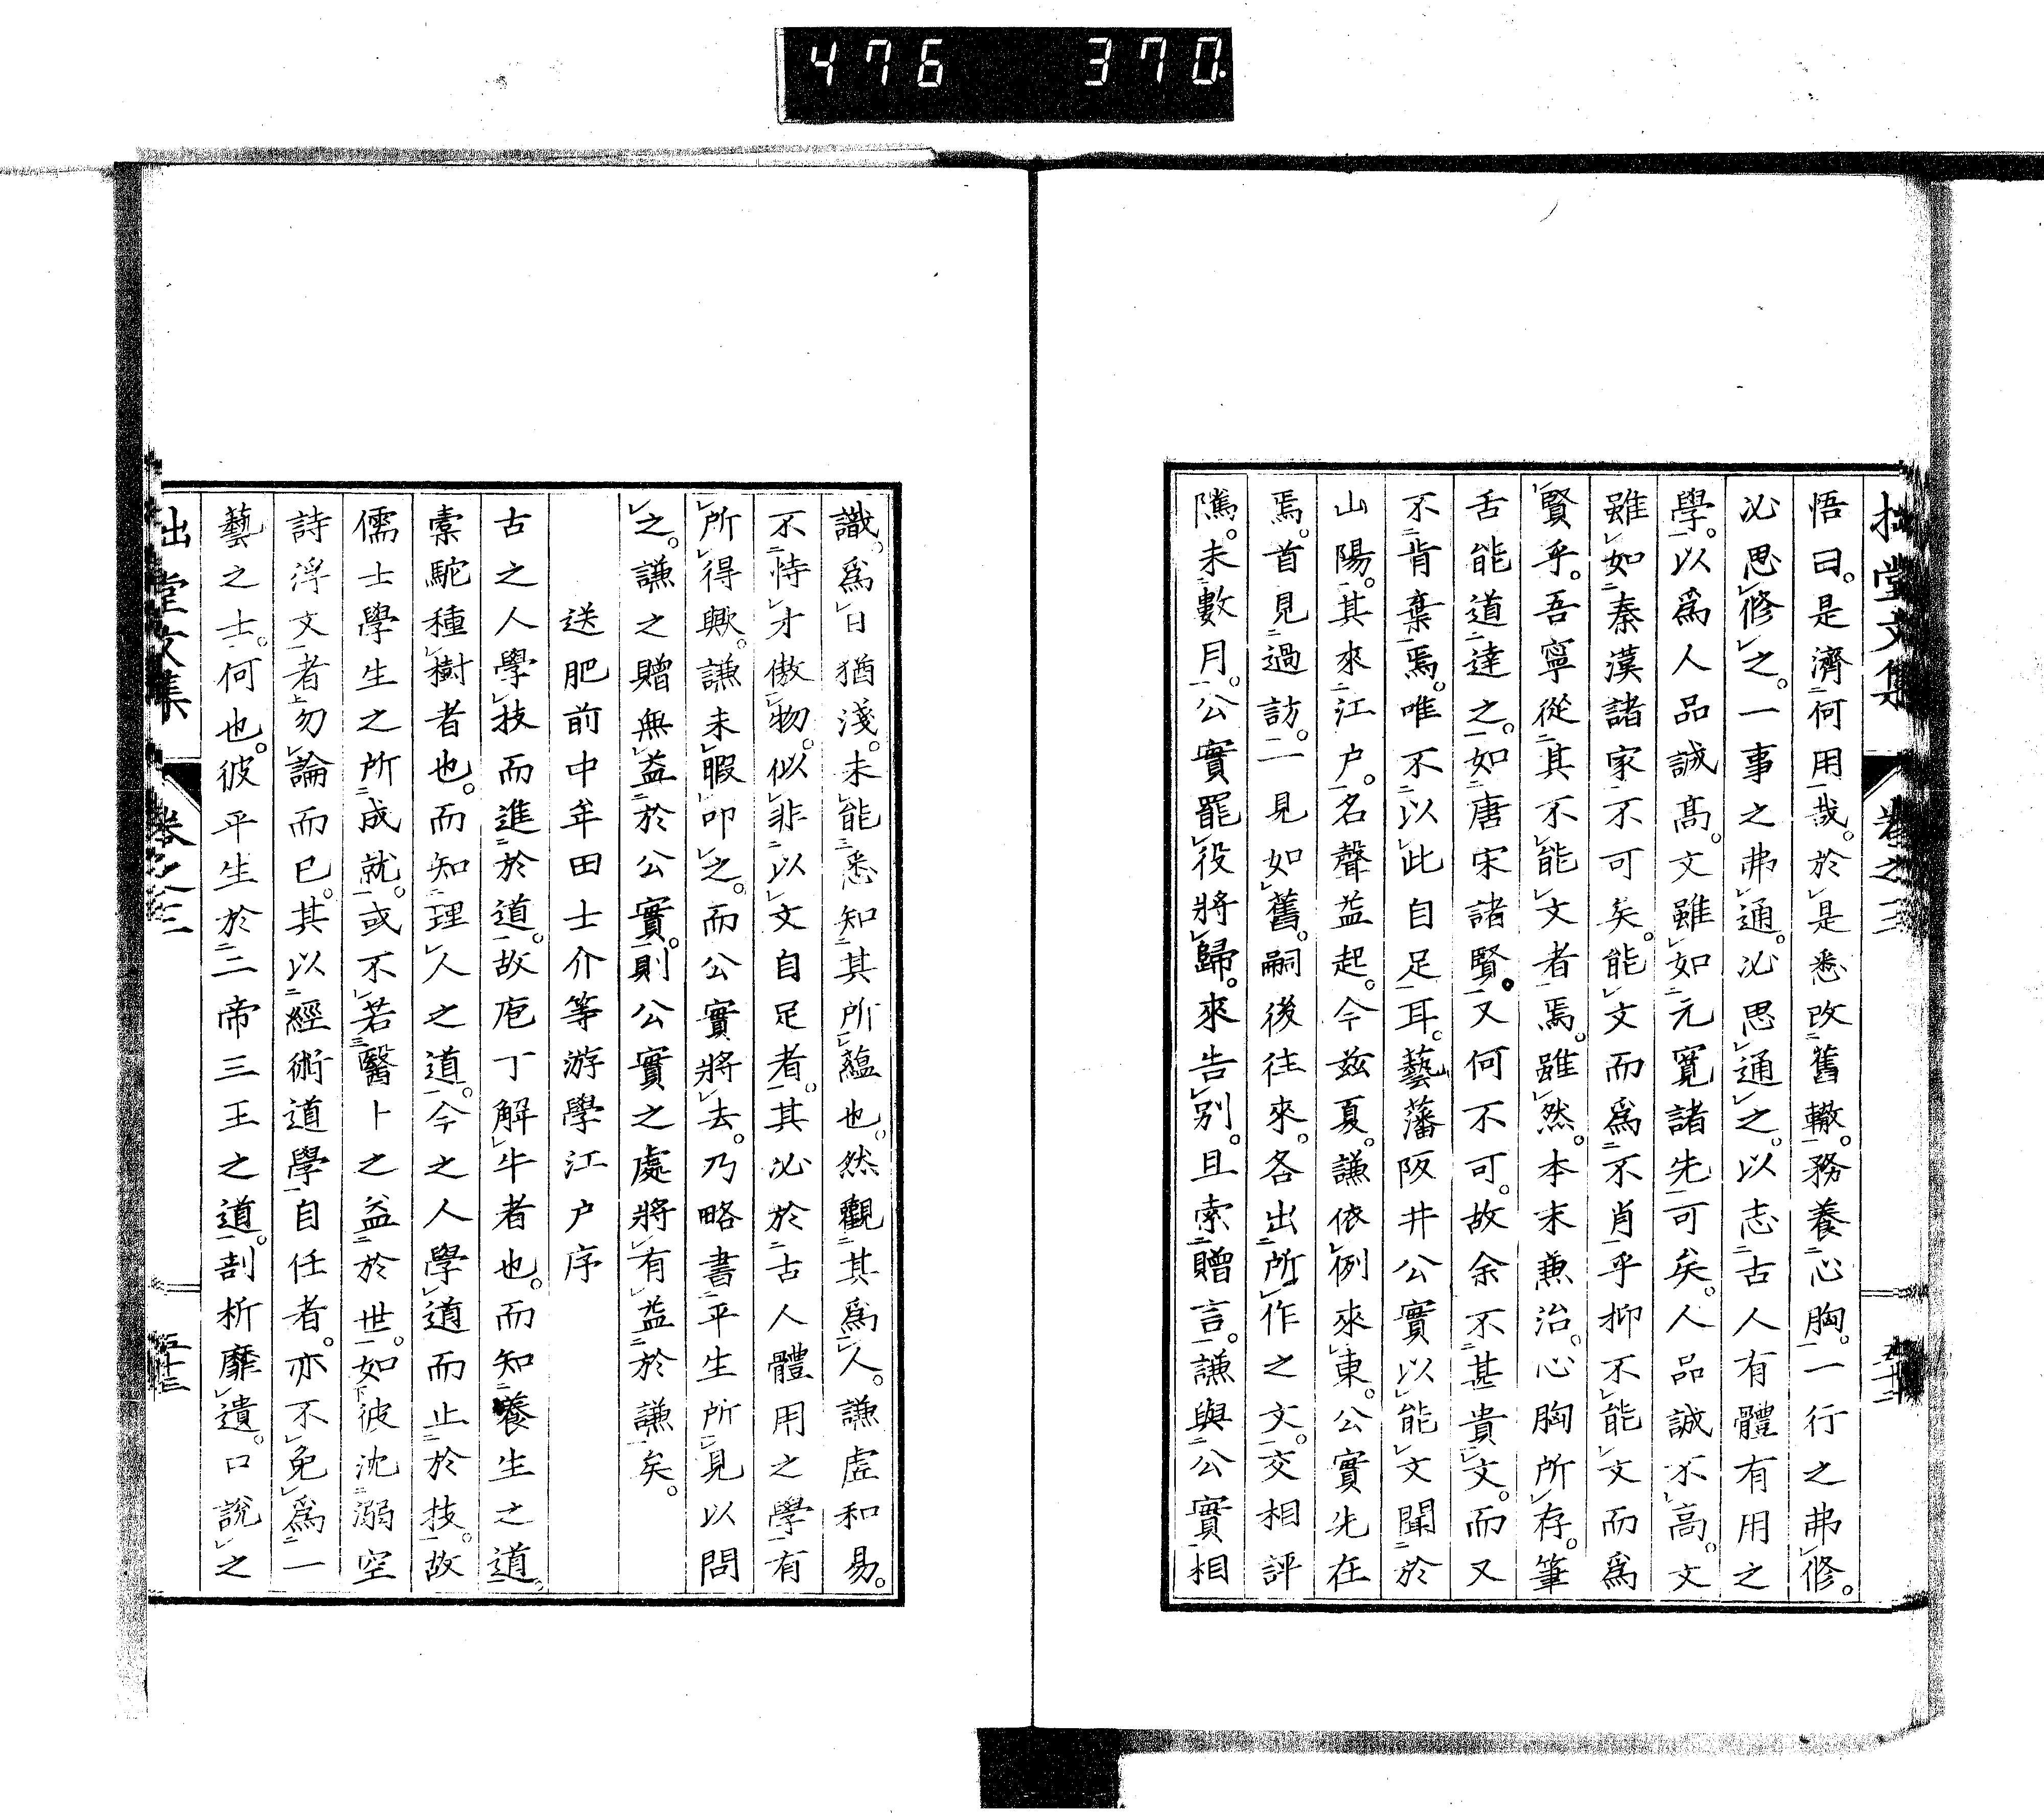 476 370
拙堂文集 卷之三 五十二
悟曰。是濟何用哉。於是悉改舊轍。務養心胸。一行之弗修。
必思修之。一事之弗通。必思通之。以志古人有體有用之
學。以爲人品誠高。文雖如元寬諸先可矣。人品誠不高。文
雖如秦漢諸家不可矣。能文而爲不肖乎抑不能文而爲
賢乎。吾寧從其不能文者焉。雖然。本末兼治。心胸所存。筆
舌能道達之。如唐宋諸賢。又何不可。故余不甚貴文。而又
不肯棄焉。唯不以此自足耳。藝藩阪井公實以能文聞於
山陽。其來江戶。名聲益起。今茲夏。謙依例來東。公實先在
焉。首見過訪。一見如舊。嗣後往來。各出所作之文。交相評
隲。未數月。公實罷役將歸。來告別。且索贈言。謙與公實相
識。爲日猶淺。未能悉知其所蘊也。然觀其爲人。謙虛和易。
不恃才傲物。似非以文自足者。其必於古人體用之學有
所得歟。謙未暇叩之。而公實將去。乃略書平生所見以問
之。謙之贈無益於公實。則公實之處將有益於謙矣。
送肥前中牟田士介等游學江戶序
古之人學技而進於道。故庖丁解牛者也。而知養生之道。
橐駝種樹者也。而知理人之道。今之人學道而止於技。故
儒士學生之所成就。或不若醫卜之益於世。如彼沈溺空
詩浮文者勿論而已。其以經術道學自任者。亦不免爲一
藝之士。何也。彼平生於二帝三王之道。剖析靡遺。口說之
拙堂文集 卷之三 五十三